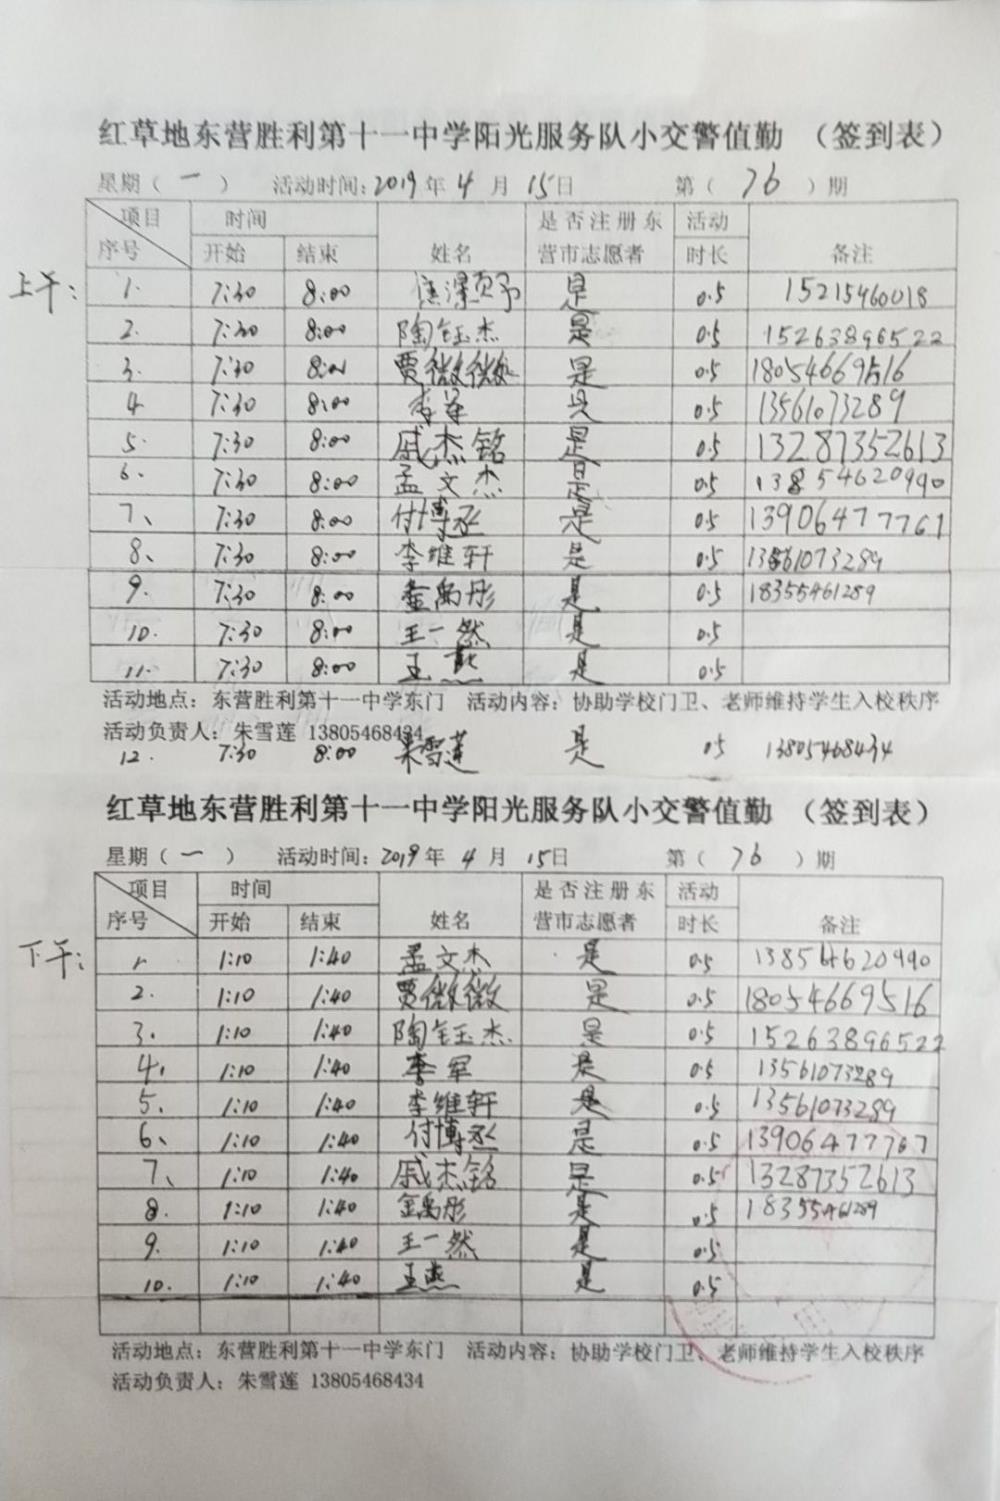 红草地东营胜利第十一中学阳光服务队小交警值勤 （签到表）
星期（ 一 ） 活动时间：2019 年 4 月 15日 第（ 76 ）期
项目 时间 是否注册东 活动
序号 开始 结束 姓名 营市志愿者 时长 备注
上午：
1. 7:30 8:00 是 0.5 15215460018
2. 7:30 8:00 陶钰杰 是 0.5 15263896522
3. 7:30 8:00 贾微微 是 0.5 18054669516
4 7:30 8:00 李军 是 0.5 13561073289
5. 7:30 8:00 戚杰铭 是 0.5 13287352613
6. 7:30 8:00 孟文杰 是 0.5 13854620990
7、 7:30 8:00 付博丞 是 0.5 13906477767
8、 7:30 8:00 李维轩 是 0.5 13561073289
9. 7:30 8:00 禹彤 是 0.5 18355461289
10. 7:30 8:00 王一然 是 0.5
11. 7:30 8:00 王燕 是 0.5
活动地点：东营胜利第十一中学东门 活动内容：协助学校门卫、老师维持学生入校秩序
活动负责人：朱雪莲 13805468434
12. 7:30 8:00 朱雪莲 是 05 13805468434
红草地东营胜利第十一中学阳光服务队小交警值勤 （签到表）
星期（ 一 ） 活动时间：2019 年 4 月 15日 第（ 76 ）期
项目 时间 是否注册东 活动
序号 开始 结束 姓名 营市志愿者 时长 备注
下午：
1. 1:10 1:40 孟文杰 是 0.5 13854620990
2. 1:10 1:40 贾微微 是 0.5 18054669516
3. 1:10 1:40 陶钰杰 是 0.5 15263896522
4, 1:10 1:40 李军 是 0.5 13561073289
5. 1:10 1:40 李维轩 是 0.5 13561073289
6、 1:10 1:40 付博丞 是 0.5 13906477767
7、 1:10 1:40 戚杰铭 是 0.5 13287352613
8. 1:10 1:40 禹彤 是 0.5 18355461289
9. 1:10 1:40 王一然 是 0.5
10. 1:10 1:40 王燕 是 0.5
活动地点：东营胜利第十一中学东门 活动内容：协助学校门卫、老师维持学生入校秩序
活动负责人：朱雪莲 13805468434